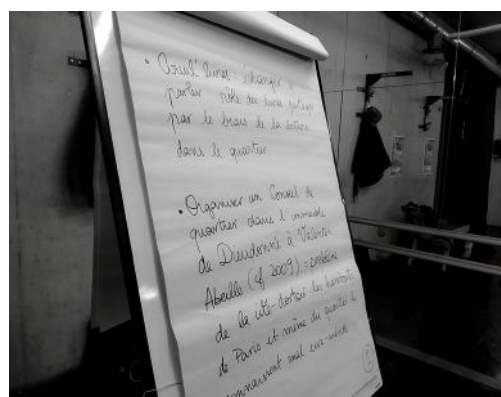 • Coul' livres échanger,
parler rôle du livre partager
par le biais de la lecture
dans le quartier
• Organiser un Conseil de
quartier dans l'immeuble
de Dieudonné à Valentin
Abeille (cf 2009) = problème
de la cité-dortoir les habitants
de Paris et même du quartier se
connaissent mal eux-mêmes